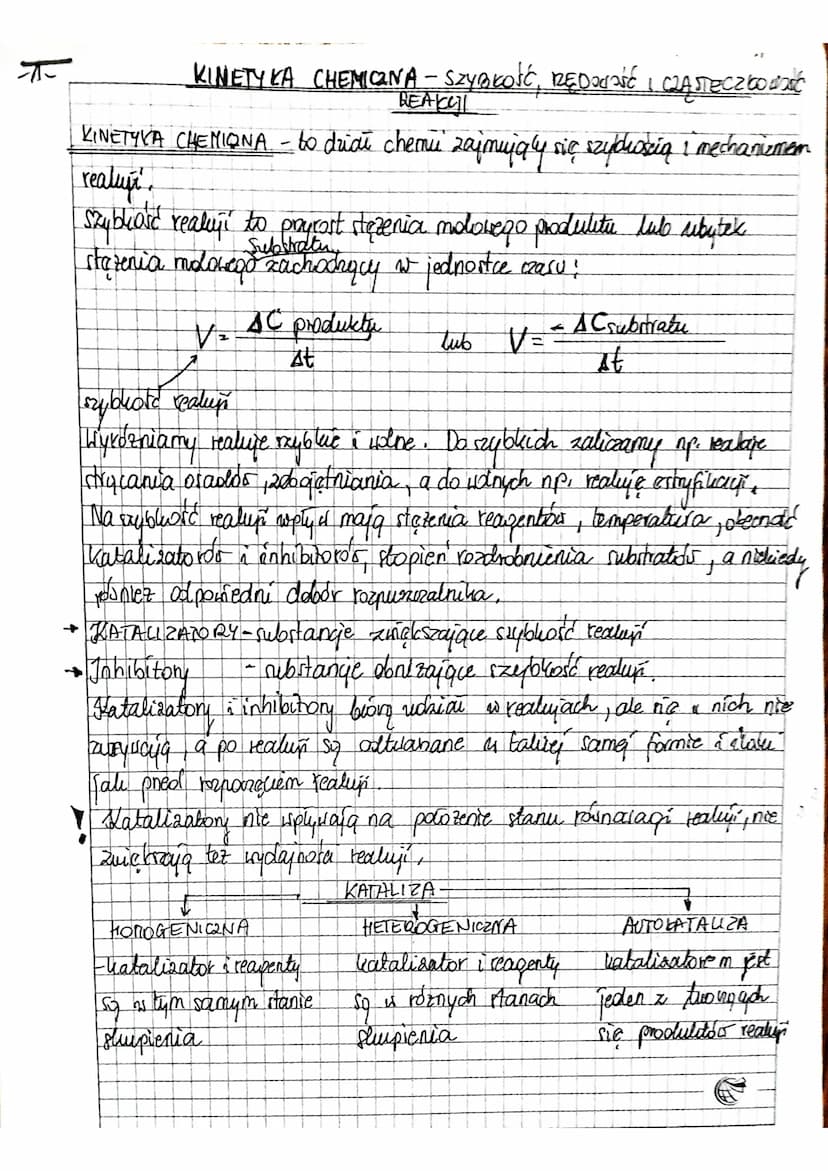 -1-
KINETYKA CHEMICZNA - SZYBKOŚĆ, RZĘDOWOŚĆ I CZĄSTECZKOWOŚĆ
REAKCJI
KINETYKA CHEMICZNA - to dział chemii zajmujący się szybkością i mechanizmem
reakcji.
Szybkość reakcji to przyrost stężenia molowego produktu lub ubytek
stężenia molowego substratu zachodzący w jednostce czasu:
V = ΔC produktu / Δt lub V = - ΔC substratu / Δt
szybkość reakcji
Wyróżniamy reakcje szybkie i wolne. Do szybkich zaliczamy np. reakcje
strącania osadów, zobojętniania, a do wolnych np. reakcję estryfikacji.
Na szybkość reakcji wpływ mają stężenia reagentów, temperatura, obecność
katalizatorów i inhibitorów, stopień rozdrobnienia substratów, a niekiedy
również odpowiedni dobór rozpuszczalnika.
→ KATALIZATORY - substancje zwiększające szybkość reakcji
→ Inhibitory - substancje obniżające szybkość reakcji.
Katalizatory i inhibitory biorą udział w reakcjach, ale się w nich nie
zużywają, a po reakcji są odtwarzane w takiej samej formie i
jak przed rozpoczęciem reakcji.
! Katalizatory nie wpływają na położenie stanu równowagi reakcji, nie
zwiększają też wydajności reakcji.
KATALIZA
HOMOGENICZNA HETEROGENICZNA AUTOKATALIZA
- katalizator i reagenty katalizator i reagenty katalizatorem jest
są w tym samym stanie są w różnych stanach jeden z tworzących
skupienia skupienia się produktów reakcji